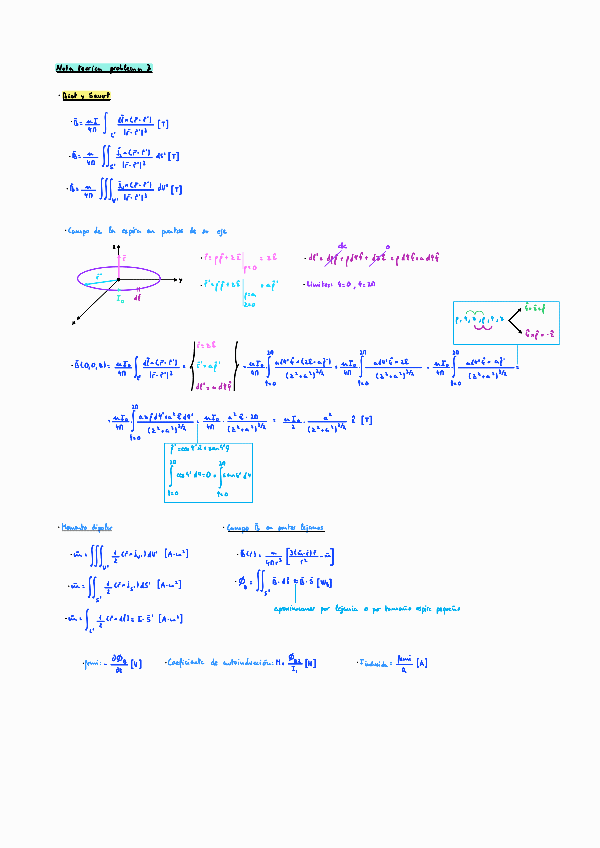 Nota teórica problema 2
· Biot y Savart
· B̄ = μI/4π ∫_C' dl̄'×(r̄-r̄')/|r̄-r̄'|³ [T]
· B̄ = μ/4π ∬_S' J̄s×(r̄-r̄')/|r̄-r̄'|³ ds' [T]
· B̄ = μ/4π ∭_V' J̄v×(r̄-r̄')/|r̄-r̄'|³ dV' [T]
· Campo de la espira en puntos de su eje
z r̄ r̄' y x I₀ dl̄
· r̄ = ρρ̂+zẑ |ρ=0 = zẑ
· r̄' = ρρ̂+zẑ |ρ=a z=0 = aρ̂'
· dl̄' = dρρ̂ + ρdφφ̂ + dzẑ = ρdφφ̂ = adφφ̂
· Límites: φ=0, φ=2π
ρ, φ, z, ρ, φ, z
φ̂×ẑ=ρ̂
φ̂×ρ̂=-ẑ
· B̄(0,0,z) = μI₀/4π ∫_C' dl̄'×(r̄-r̄')/|r̄-r̄'|³ = { r̄=zẑ r̄'=aρ̂' dl̄'=adφφ̂ } = μI₀/4π ∫_{φ=0}^{2π} adφ'φ̂×(zẑ-aρ̂')/(z²+a²)^{3/2} = μI₀/4π ∫_{φ=0}^{2π} adφ'φ̂×zẑ/(z²+a²)^{3/2} - μI₀/4π ∫_{φ=0}^{2π} adφ'φ̂×aρ̂'/(z²+a²)^{3/2} =
= μI₀/4π · ∫_{φ=0}^{2π} azρ̂dφ'+a²ẑdφ'/(z²+a²)^{3/2} = μI₀/4π · a²ẑ·2π/(z²+a²)^{3/2} = μI₀/2 · a²/(z²+a²)^{3/2} ẑ [T]
ρ̂'=cosφ'x̂+senφ'ŷ
∫_{φ=0}^{2π} cosφ'dφ=0=∫_{φ=0}^{2π} senφ'dφ
· Momento dipolar
· m̄ = ∭_V' 1/2 (r̄×J̄v')dV' [A·m²]
· m̄ = ∬_S' 1/2 (r̄×J̄s')dS' [A·m²]
· m̄ = ∫_C' 1/2 (r̄×dl̄) = I·S̄' [A·m²]
· Campo B̄ en puntos lejanos
· B̄(r̄) = μ/4πr³ [3(m̄·r̄)r̄/r² - m̄]
· Φ_B = ∬_S' B̄·ds̄ ≅ B̄·S̄ [Wb]
aproximamos por lejanía o por tamaño espira pequeño
· femi = -∂Φ_B/∂t [V]
· Coeficiente de autoinducción: M = Φ_B2/I₁ [H]
· I inducida = femi/R [A]